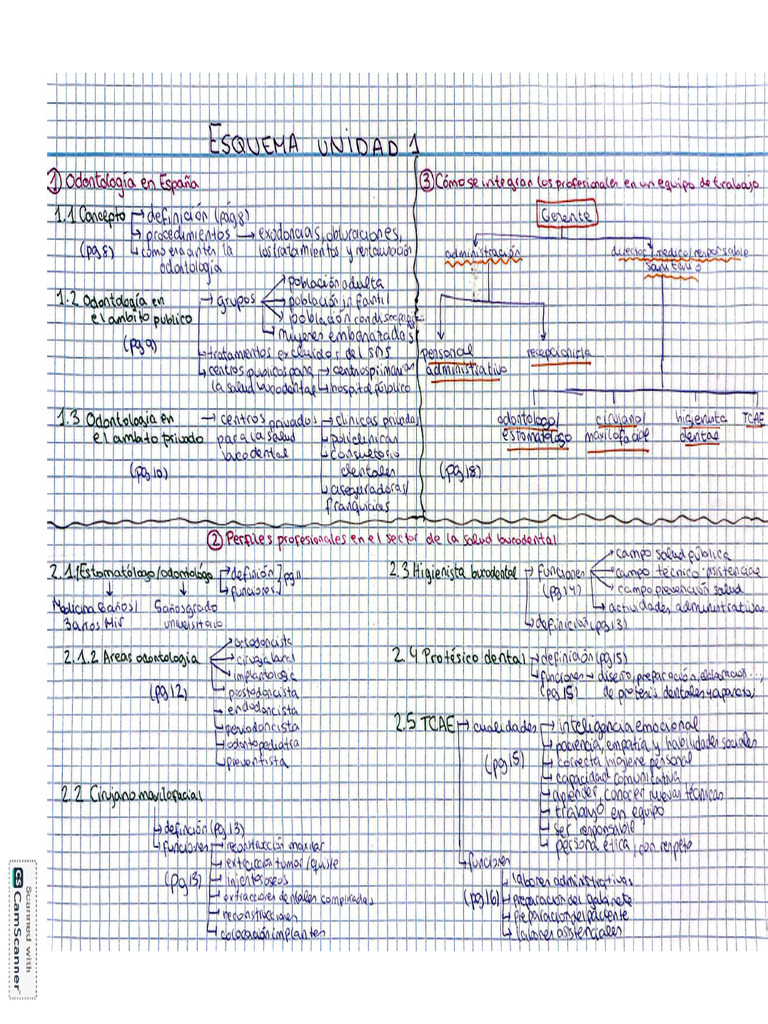 ESQUEMA UNIDAD 1
① Odontología en España
1.1 Concepto → definición (pág 8)
→ procedimientos → exodoncias, obturaciones,
(pg 8) → como en anter la los tratamientos y restauración
odontología
1.2 Odontología en
el ambito publico
(pg 9)
→ grupos → población adulta
→ población infantil
→ población con discapaci
→ mujeres embarazadas
→ tratamientos excluidos del SNS
→ centros publicos para → centros primarios
la salud bucodental → hospital público
1.3 Odontología en → centros privados → clinicas privadas
el ambito privado para la salud → policlinicas
bucodental → consultorio
(pg 10) dentales
→ aseguradoras/
franquicias
③ Cómo se integran los profesionales en un equipo de trabajo
Gerente
administración director medico/responsable
sanitario
personal recepcionista
administrativo
odontologo/ cirujano/ higienista TCAE
estomatólogo maxilofacial dental
(pg 18)
② Perfiles profesionales en el sector de la salud bucodental
2.1. Estomatólogo/odontólogo → definición ] pg 11
→ funciones
Medicina 6 años/ 5 años grado
3 años Mir universitario
2.1.2 Areas odontología
(pg 12)
→ ortodoncista
→ cirugía oral
→ implantología
→ prostodoncista
→ endodoncista
→ periodoncista
→ odontopediatra
→ preventista
2.2 Cirujano maxilofacial
→ definición (pg 13)
→ funciones → reconstrucción maxilar
→ extracción tumor/quiste
(pg 13) → injertos oseos
→ extracciones dentales complicadas
→ reconstrucciones
→ colocación implantes
2.3 Higienista bucodental → funciones
(pg 14)
→ campo salud pública
→ campo técnico-asistencias
→ campo prevención salud
→ actividades administrativas
→ definicion (pg 13)
2.4 Protésico dental → definición (pg 15)
→ funciones → diseño, preparación, elaboración...,
(pg 15) de protesis dentales y aparatos
2.5 TCAE → cualidades → inteligencia emocional
(pg 15) → paciencia, empatía y habilidades sociales
→ correcta higiene personal
→ capacidad comunicativa
→ aprender, conocer nuevas técnicas
→ trabajo en equipo
→ ser responsable
→ persona etica, con respeto
→ funciones
→ labores administrativas
(pg 16) → preparacion del gabinete
→ preparacion del paciente
→ labores asistenciales
CS CamScanner
Scanned with